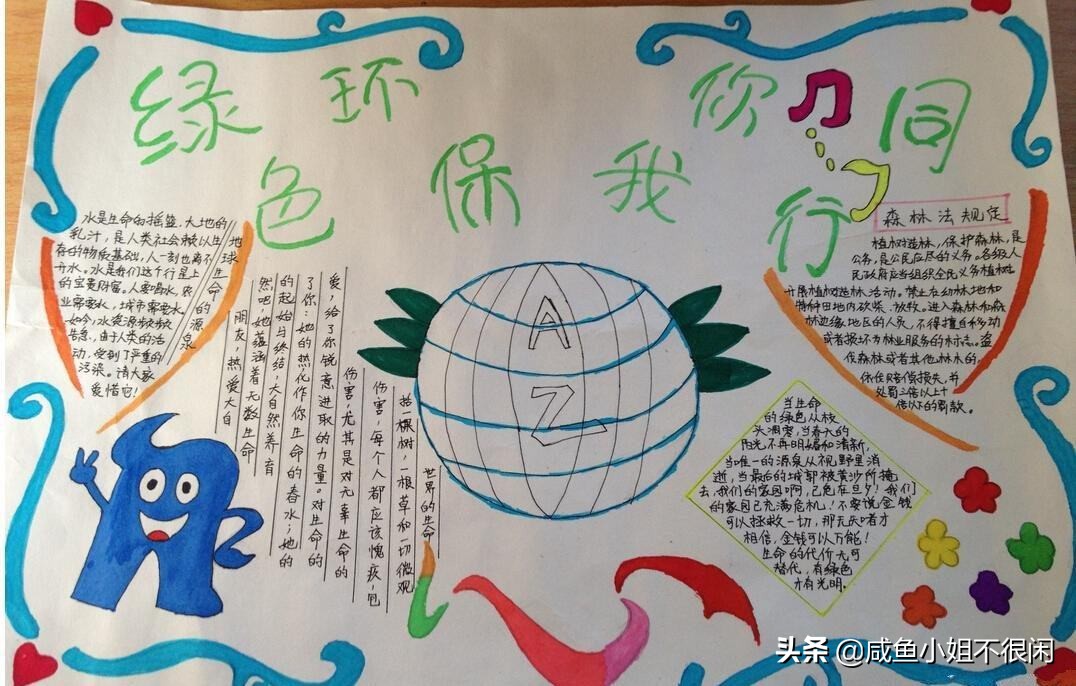 绿色环保我你行同
水是生命的摇篮,大地的
乳汁,是人类社会赖以生
存的物质基础,人一刻也离不
开水。水是我们这个行星上
的宝贵财富。人要喝水,农
业需要水,城市需要水,
如今,水资源频频
告急,由于人类的活
动,受到了严重的
污染。请大家
爱惜它!
地球生命的源泉
朋友,热爱大自
然吧,她蕴涵着无数生命
的起始与终结,大自然养育
了你:她的热化作你生命的春水;她的
爱,给了你锐意进取的力量。对生命的
伤害,尤其是对无辜生命的
伤害,每个人都应该愧疚,包
括一棵树,一根草和一切微观
世界的生命
A
Z
森林法规定
植树造林,保护森林,是
公务,是公民应尽的义务。各级人
民政府应当组织全民义务植树
开展植树造林活动。禁止在幼林地和
特种用地内砍柴、放牧。进入森林和森
林边缘地区的人员,不得擅自移动
或者损坏为林业服务的标志。盗
伐森林或者其他林木的,
依法赔偿损失,并
处罚三倍以上十
倍以下的罚款。
当生命
的绿色从枝
头凋零,当春天的
阳光,不再明媚和清新,
当唯一的源泉从视野里消
逝,当最后的城郭被黄沙所掩
去,我们的家园啊,已危在旦夕!我们
的家园已充满危机!不要说金钱
可以拯救一切,那无夫者才
相信,金钱可以万能!
生命的代价无可
替代,有绿色
才有光明。
头条 @咸鱼小姐不很闲